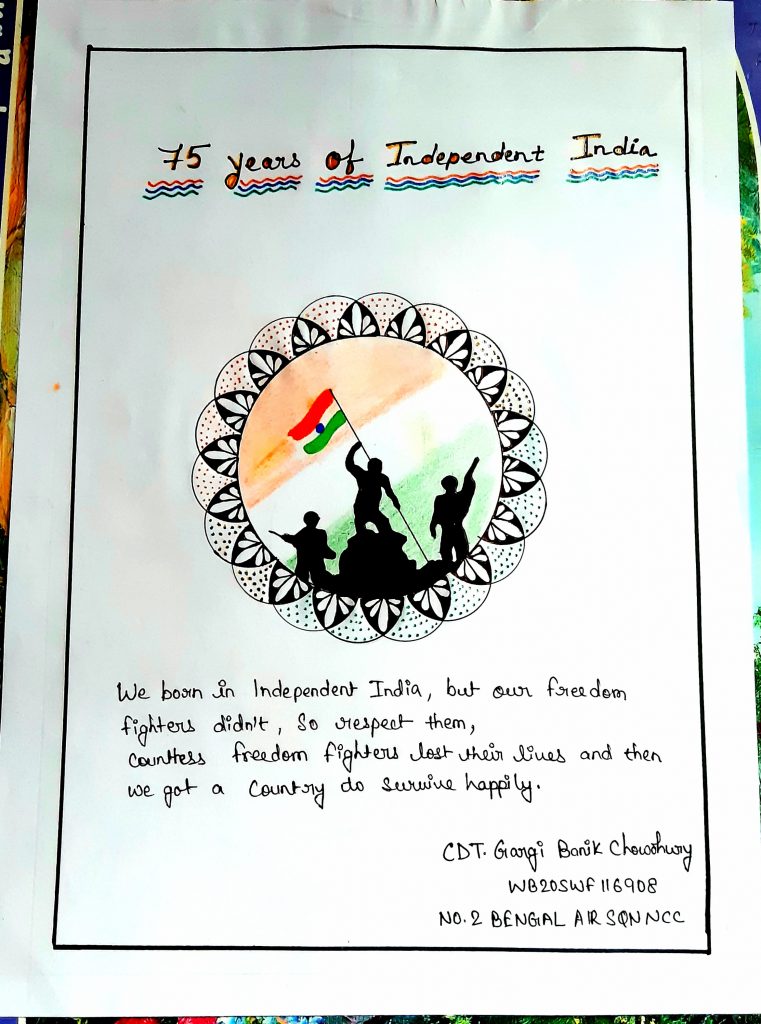 75 years of Independent India
We born in Independent India, but our freedom
fighters didn't, So respect them,
countless freedom fighters lost their lives and then
we got a Country do survive happily.
CDT. Gargi Banik Chowdhury
WB20SWF116908
NO.2 BENGAL AIR SQN NCC